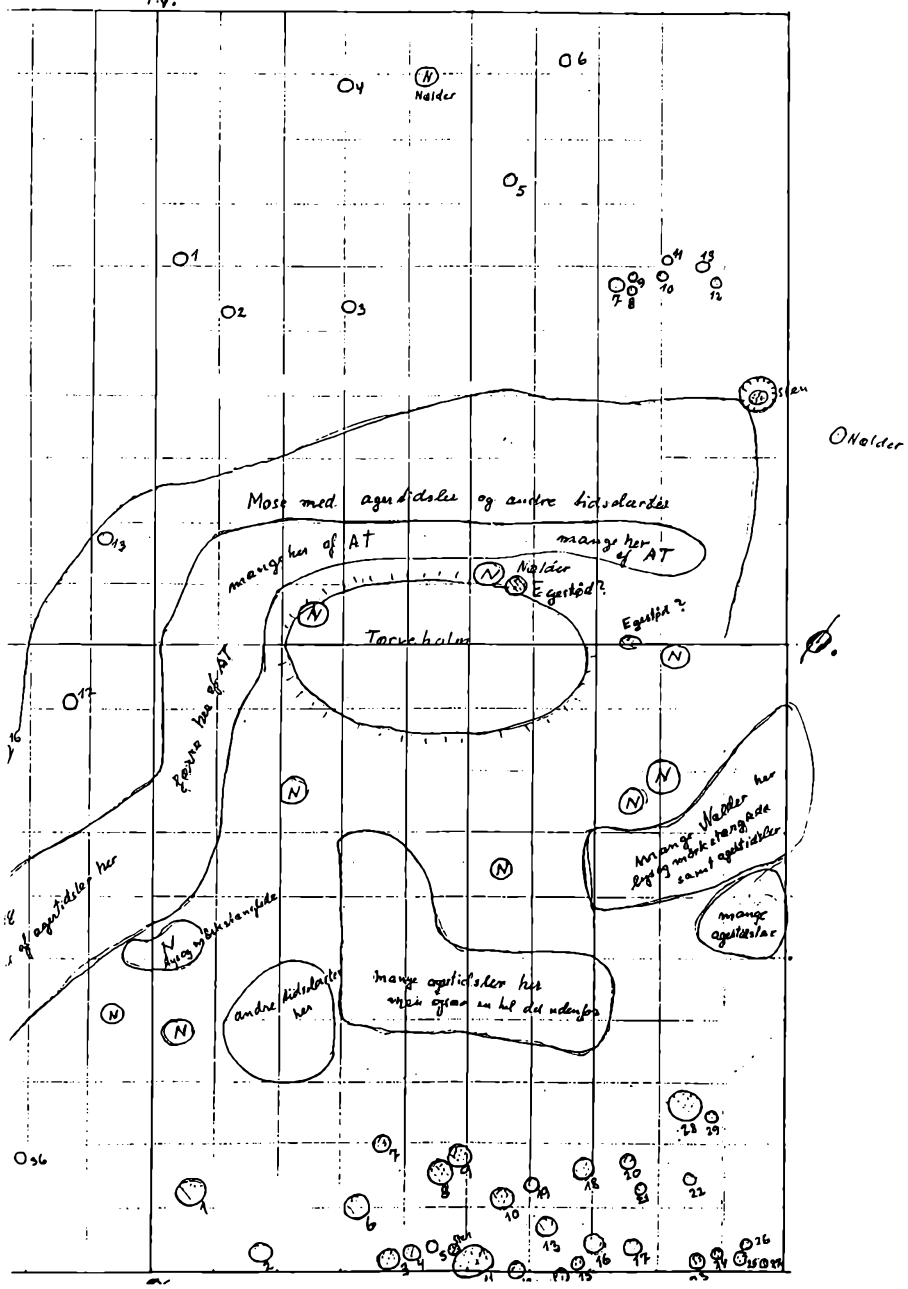 6
4
N
Nælder
5
1
2
3
11
13
9
7
8
10
12
sten
Nælder
Mose med agertidsler og andre tidselarter
13
mange her af AT
mange her
af AT
N
Nælder
Egestød?
N
Egestød?
Tørveholm
N
17
16
færre her af AT
N
N
N
mange Nælder her
lys og mørkstænglede
samt agertidsler
N
af agertidsler her
mange
agertidsler
N
lys og mørkstænglede
andre tidselarter
her
mange agertidsler her
men også en hel del udenfor
N
N
28
29
36
7
9
8
18
20
21
22
1
6
10
19
13
2
3
4
5
sten
11
15
16
17
26